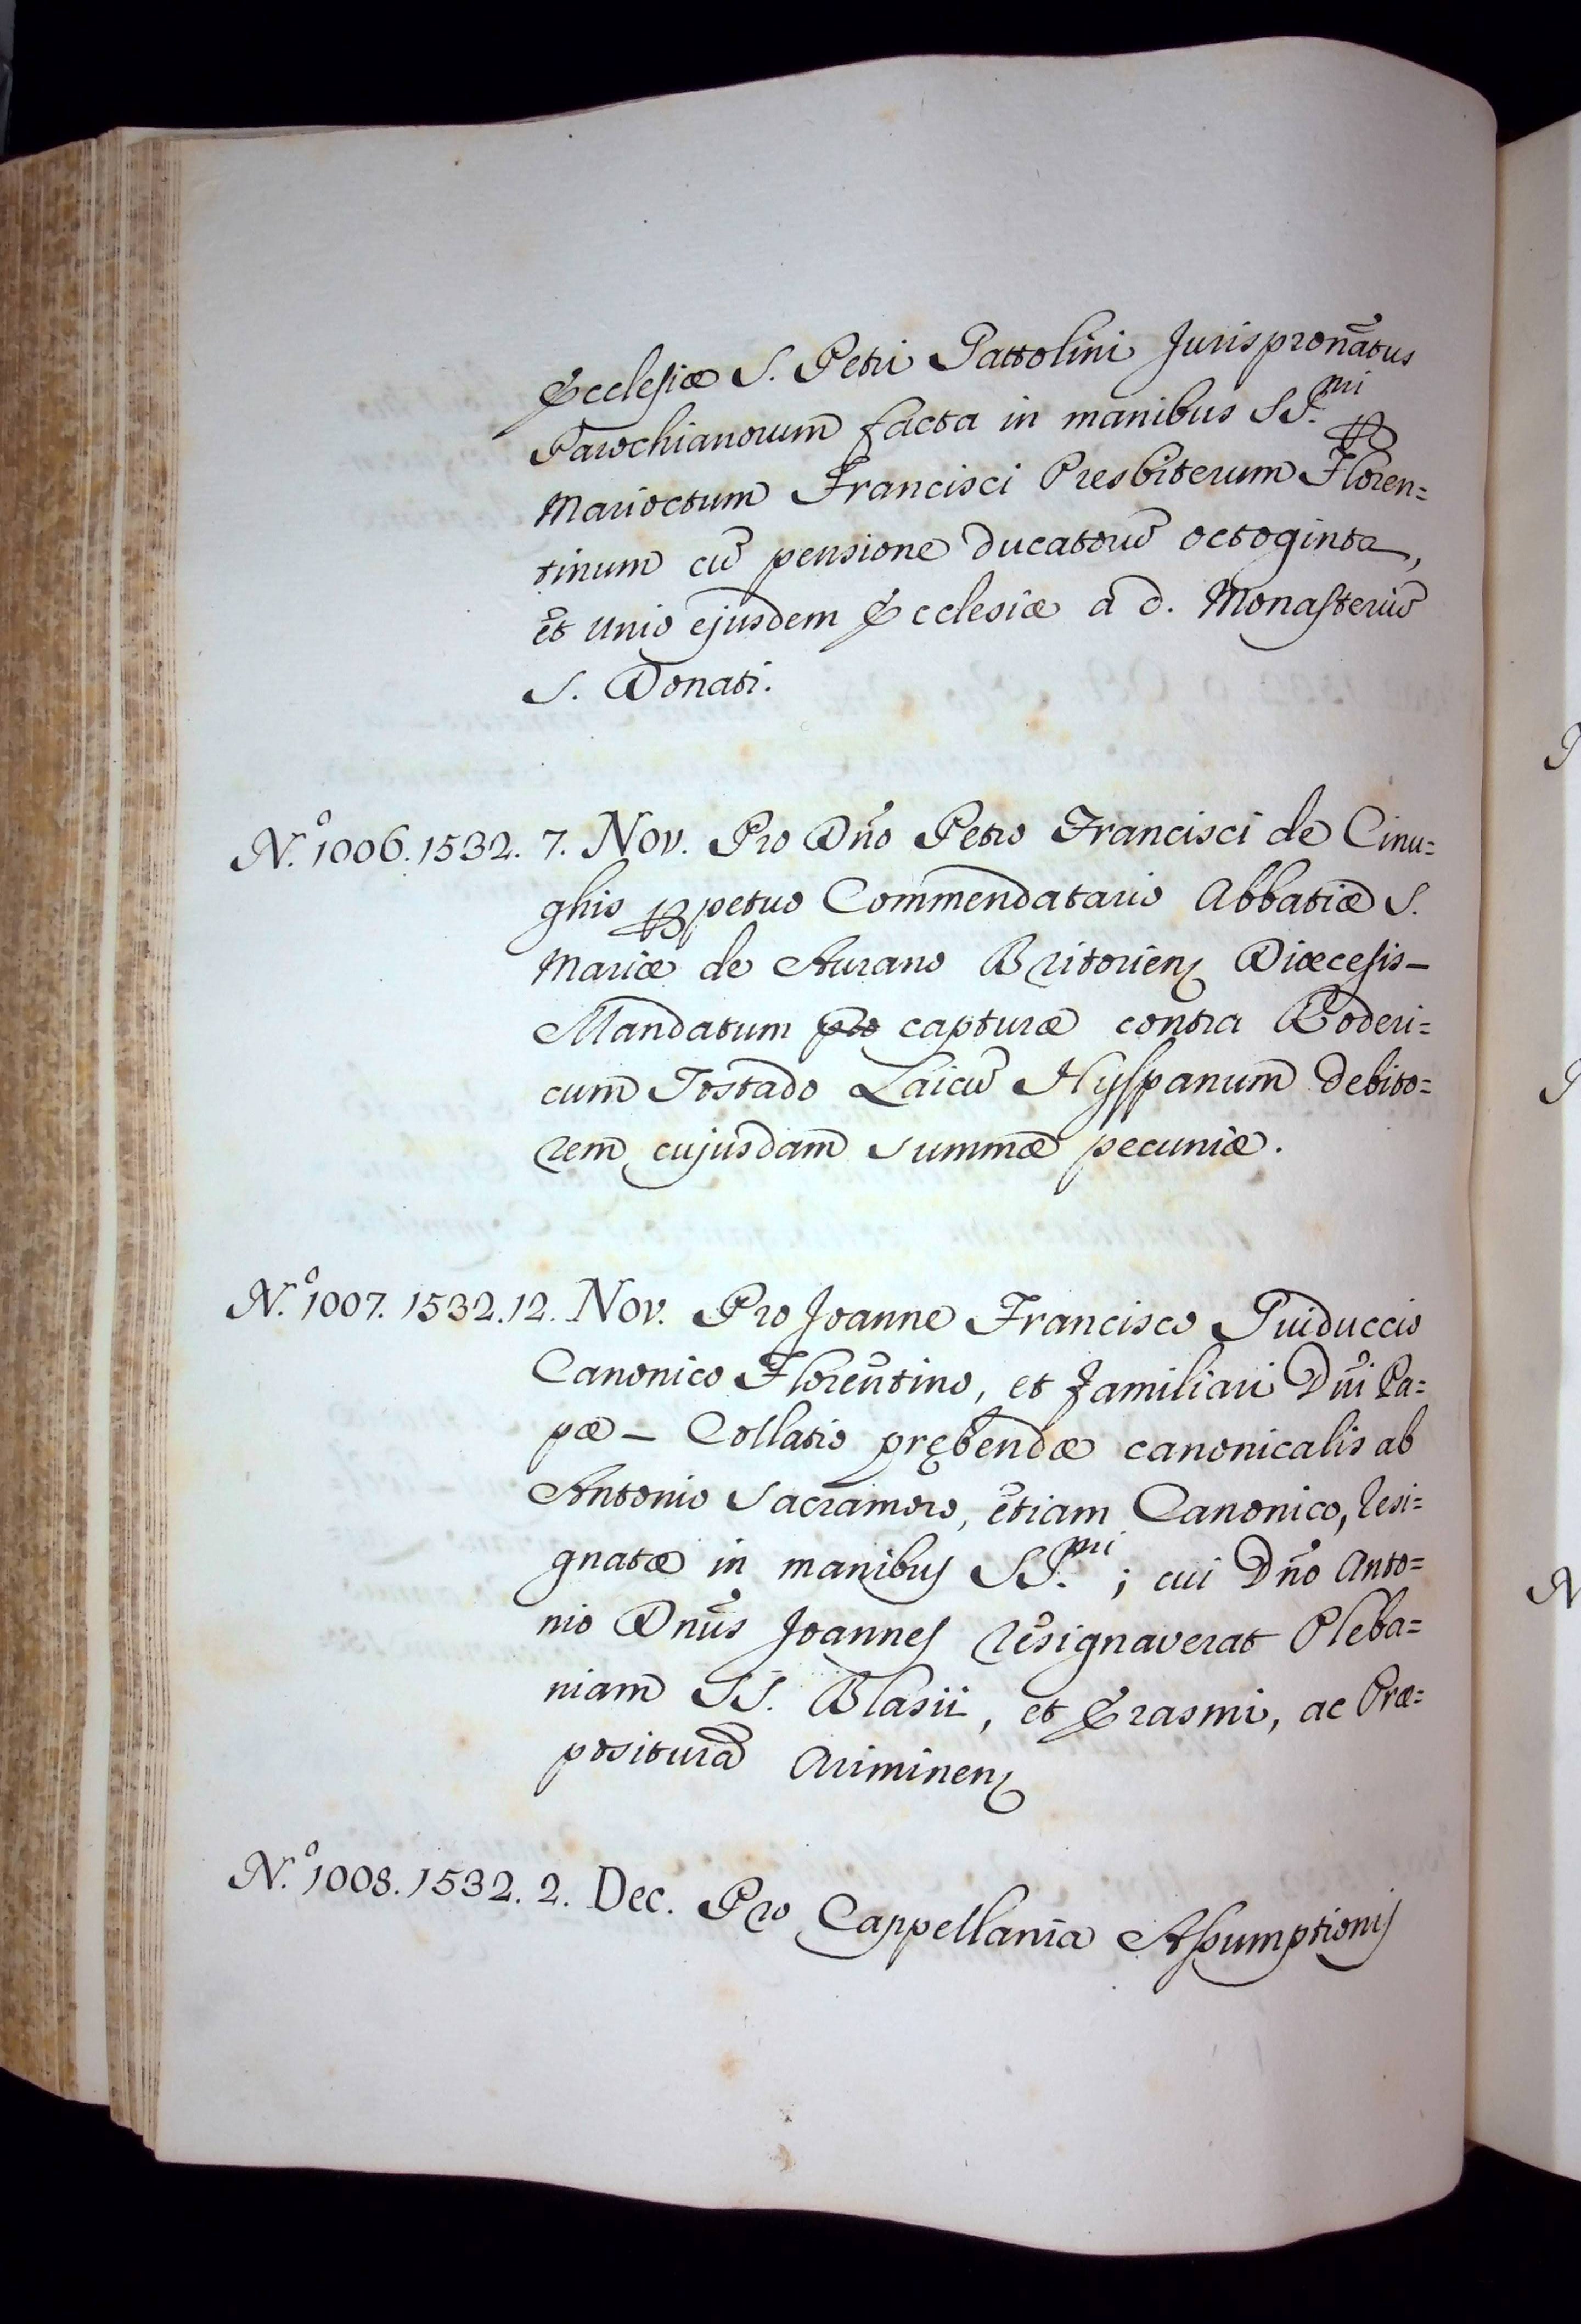 Ecclesiæ S. Petri Gattolini Jurispronãtus
Parochianorum facta in manibus SS.mi ꝑ
Marioctum Francisci Presbiterum Floren=
tinum cũ pensione ducatorũ octoginta,
et unio ejusdem Ecclesiæ a d. Monasteriũ
S. Donati.
N.º 1006. 1532. 7. Nov. Pro Dño Petro Francisci de Cinu=
ghis ꝑpetuo Commendatario Abbatiæ S.
Mariæ de Aurano Britorienς Diœcesis—
Mandatum pro capturæ contra Roderi=
cum Tostado Laicũ Hyspanum debito=
rem cujusdam summæ pecuniæ.
N.º 1007. 1532. 12. Nov. Pro Joanne Francisco Guiduccio
Canonico Florentino, et familiari Dñi Pa=
pæ — Collatio prębendæ canonicalis ab
Antonio Sacramoro, etiam Canonico, resi=
gnatæ in manibus SS.mi; cui Dño Anto=
nio Dnũs Joannes resignaverat Pleba=
niam SS. Blasii, et Erasmi, ac Præ=
positurã Ariminenς
N.º 1008. 1532. 2. Dec. Pro Cappellania Assumptionis